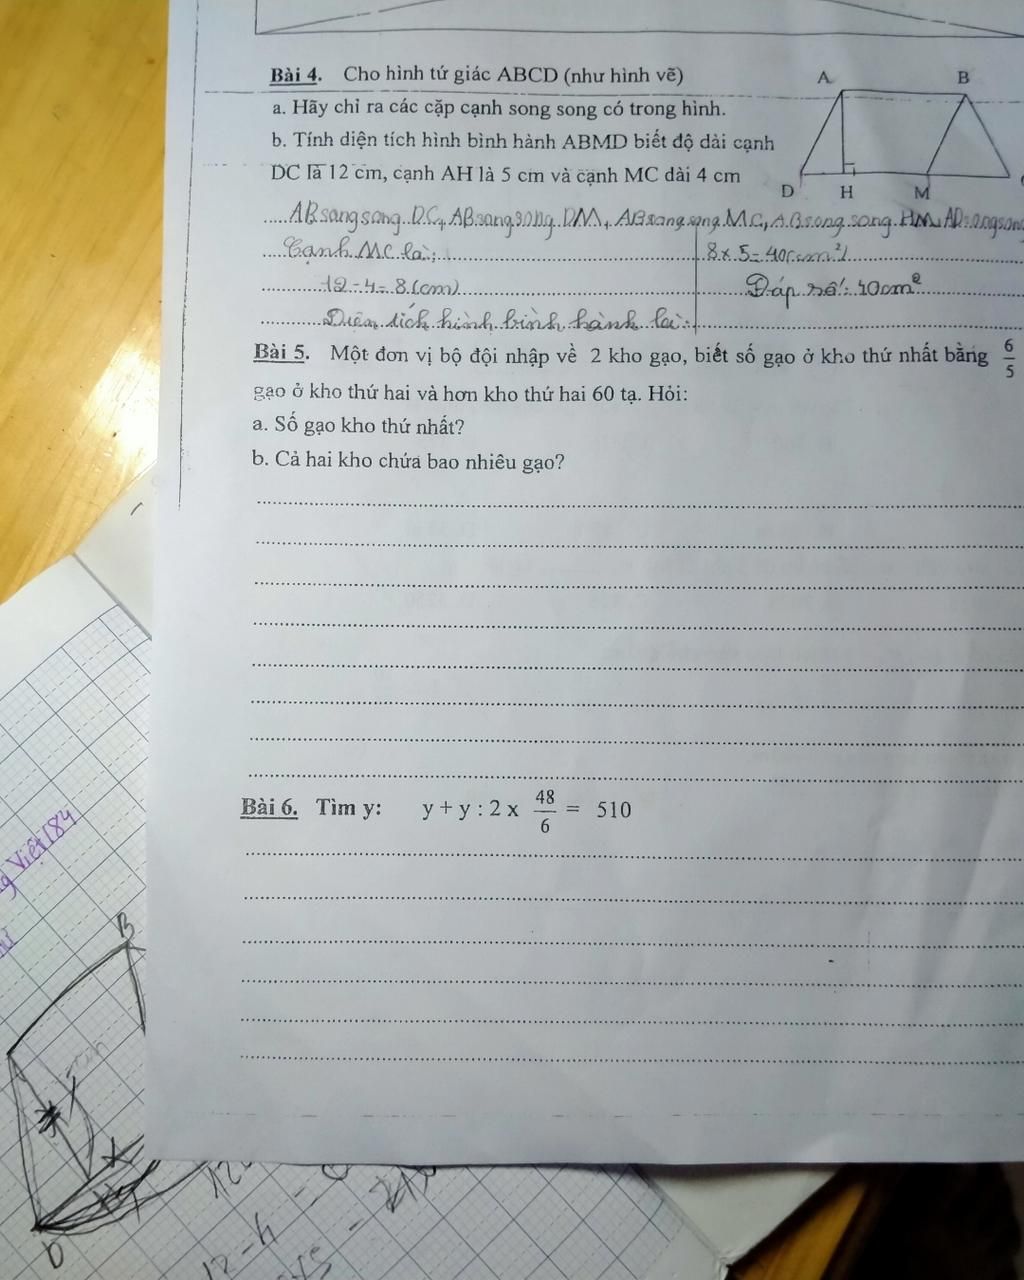 Bài 4. Cho hình tứ giác ABCD (như hình vẽ)
a. Hãy chỉ ra các cặp cạnh song song có trong hình.
b. Tính diện tích hình bình hành ABMD biết độ dài cạnh
DC là 12 cm, cạnh AH là 5 cm và cạnh MC dài 4 cm
A B
D H M
AB sang song DC, AB sang song DM, AB sang song MC, AB song song HM, AD sang song
Cạnh MC là: 8 x 5 = 40 (cm²)
12 - 4 = 8 (cm) Đáp số: 40cm²
Diện tích hình bình hành là:
Bài 5. Một đơn vị bộ đội nhập về 2 kho gạo, biết số gạo ở kho thứ nhất bằng 6/5
gạo ở kho thứ hai và hơn kho thứ hai 60 tạ. Hỏi:
a. Số gạo kho thứ nhất?
b. Cả hai kho chứa bao nhiêu gạo?
Bài 6. Tìm y: y + y : 2 x 48/6 = 510
Việt 84
B
D
12 - 4